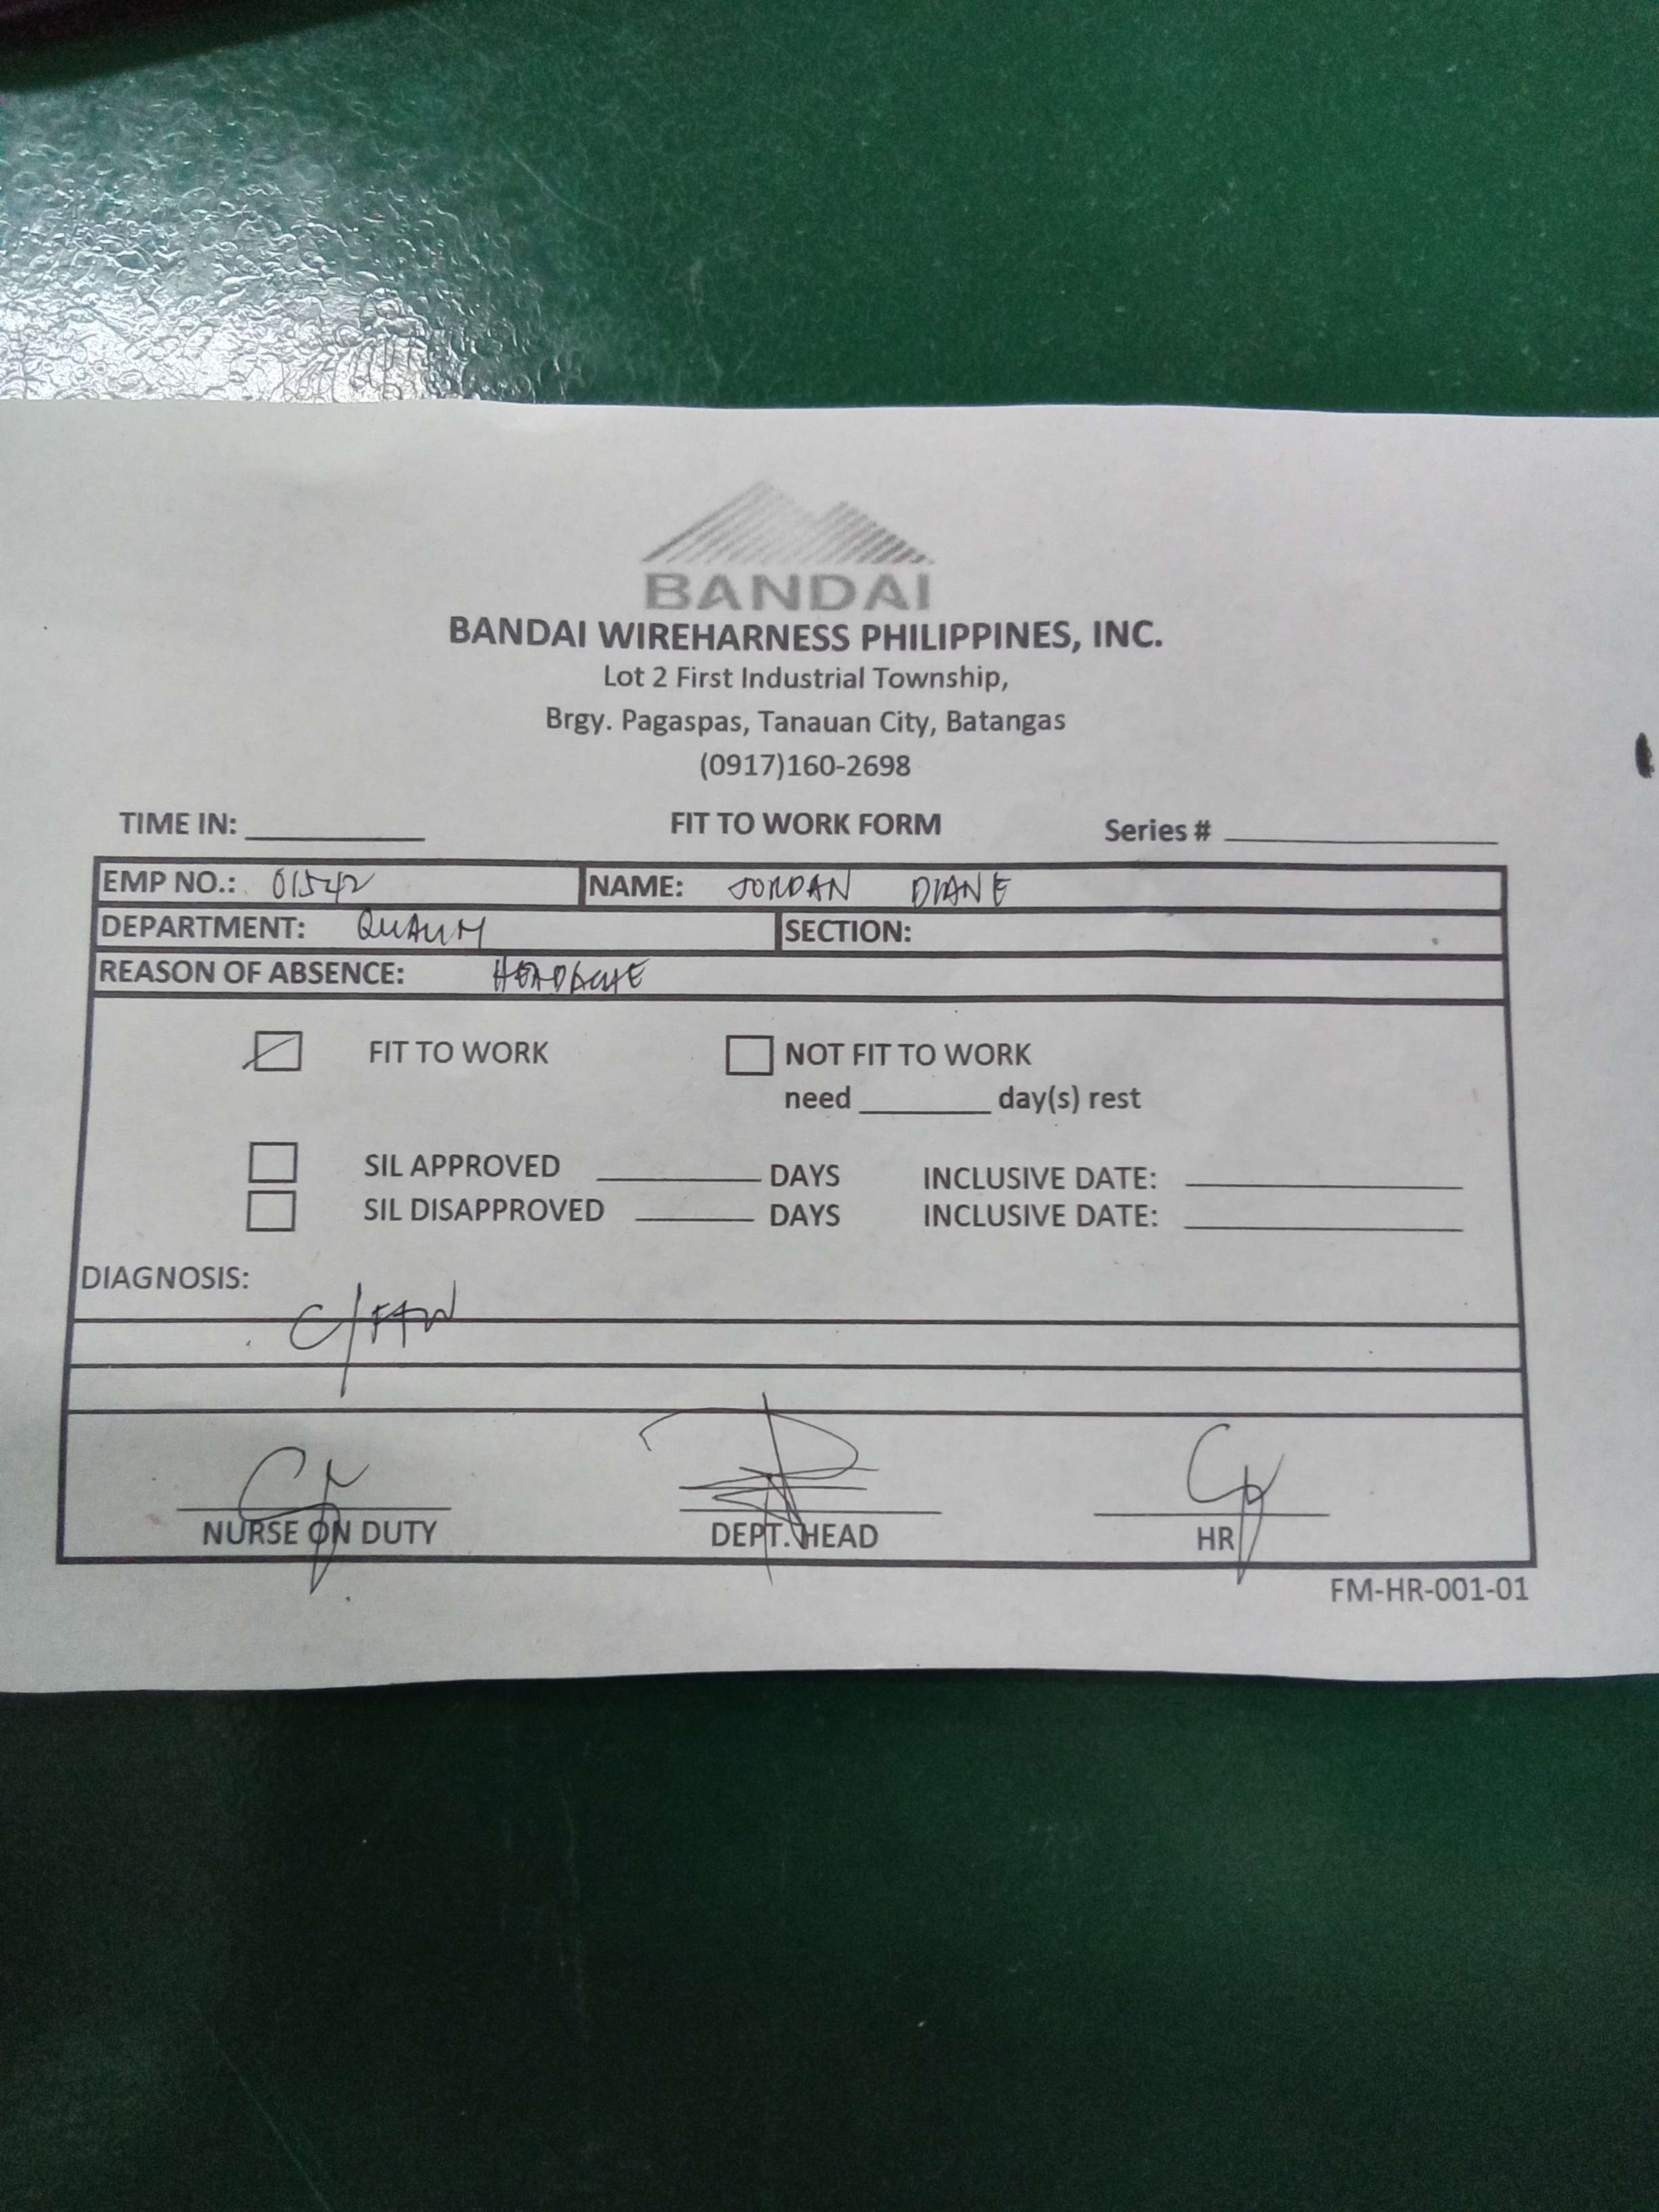 BANDAI
BANDAI WIREHARNESS PHILIPPINES, INC.
Lot 2 First Industrial Township,
Brgy. Pagaspas, Tanauan City, Batangas
(0917)160-2698
TIME IN: FIT TO WORK FORM Series #
EMP NO.: 01542 NAME: JORDAN DIANE
DEPARTMENT: QUALITY SECTION:
REASON OF ABSENCE: HEADACHE
FIT TO WORK NOT FIT TO WORK
need day(s) rest
SIL APPROVED DAYS INCLUSIVE DATE:
SIL DISAPPROVED DAYS INCLUSIVE DATE:
DIAGNOSIS:
NURSE ON DUTY DEPT. HEAD HR
FM-HR-001-01